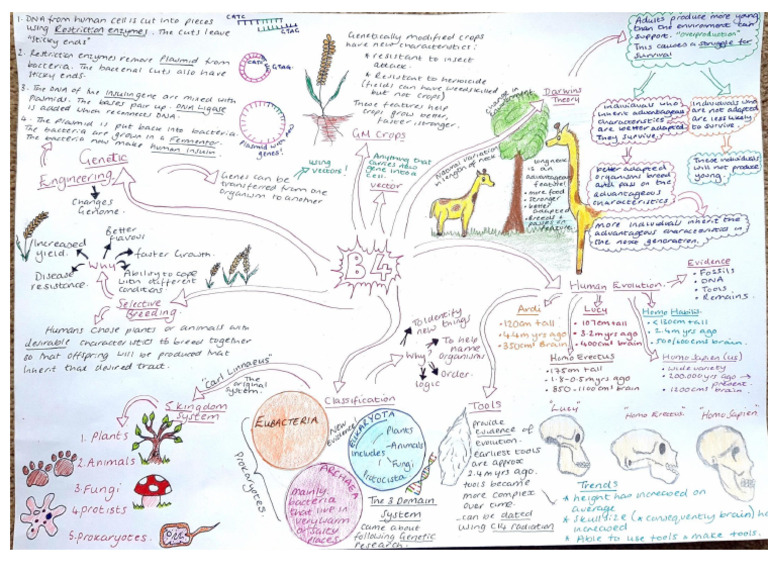 1. DNA from human cell is cut into pieces
using Restriction enzymes. The cuts leave
"sticky ends"
CATC
GTAG
2. Restriction enzymes remove Plasmid from
bacteria. The bacterial cuts also have
sticky ends.
CATC
GTAG
3. The DNA of the insulin gene are mixed with
Plasmids. The bases pair up. DNA Ligase
is added which reconnects DNA.
Plasmid with
genes!
4. The Plasmid is put back into bacteria.
The bacteria are grown in a Fermenter.
The bacteria now make human insulin.
Genetic
Engineering
Changes
Genome.
Genes can be
transferred from one
organism to another
Genetically modified crops
have new characteristics:
* resistant to insect
attack.
* Resistant to herbicide
(fields can have weeds killed
but not crops)
These features help
crops grow better,
faster, stronger.
GM Crops
using
vectors!
Anything that
carries new
gene into a
cell.
vector
change in
environment
Natural variation
in length of neck
Long neck
is an
advantageous
feature!
• more food
• stronger
• better
adapted
• Breeds &
passes on
Darwins
Theory
Adults produce more young
than the environment can
support. "overproduction"
This causes a struggle for
survival
Individuals who
inherit advantageous
characteristics
are better adapted.
They survive.
Individuals who
are not adapted
are less likely
to survive.
These individuals
will not produce
young.
better adapted
organisms breed
and pass on the
advantageous
characteristics
more individuals inherit the
advantageous characteristics in
the next generation.
B4
Increased
yield.
Better
flavour
faster Growth.
Why
Disease
resistance.
Ability to cope
with different
conditions
Selective
Breeding
Humans chose plants or animals with
desirable characteristics to breed together
so that offspring will be produced that
inherit that desired trait.
Human Evolution
Evidence
• Fossils
• DNA
• Tools
• Remains.
Ardi
• 120cm tall
• 4.4 m yrs ago
• 350cm³ brain
Lucy
• 107cm tall
• 3.2 m yrs ago
• 400cm³ brain
Homo Habilis
• <130cm tall
• 2.4 m yrs ago
• 500/600cm³ brain.
Homo Erectus
• 175m tall
• 1.8-0.5m yrs ago
• 850-1100cm³ brain
Homo Sapien(us)
• wide variety
• 200,000 yrs ago → present
• 1200cm³ brain
To Identify
new things
To help
name
organisms
Why
Order.
logic
"Carl Linnaeus"
The
original
system.
Classification
5 kingdom
System
1. Plants
2. Animals
3. Fungi
4. protists
5. prokaryotes.
EUBACTERIA
New
Evidence!
EUKARYOTA
includes
• Plants
• Animals
• Fungi
• Protoctista
Prokaryotes.
ARCHAEA
mainly
bacteria
that live in
very warm
or salty
places
The 3 Domain
System
came about
following Genetic
research.
Tools
provide
evidence of
evolution.
earliest tools
are approx
2.4 m yrs ago.
tools became
more complex
over time.
can be dated
using C14 radiation
"Lucy"
"Homo Erectus"
"Homo Sapien"
Trends
* height has increased on
average
* Skull size (& consequently brain) ha
increased
* Able to use tools & make tools.